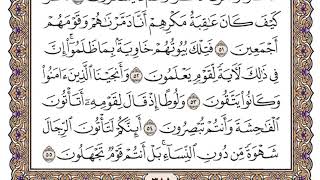 كَيْفَ كَانَ عَٰقِبَةُ مَكْرِهِمْ أَنَّا دَمَّرْنَٰهُمْ وَقَوْمَهُمْ
أَجْمَعِينَ ٥١ فَتِلْكَ بُيُوتُهُمْ خَاوِيَةًۢ بِمَا ظَلَمُوٓا۟ إِنَّ
فِى ذَٰلِكَ لَءَايَةً لِّقَوْمٍ يَعْلَمُونَ ٥٢ وَأَنجَيْنَا ٱلَّذِينَ ءَامَنُوا۟
وَكَانُوا۟ يَتَّقُونَ ٥٣ وَلُوطًا إِذْ قَالَ لِقَوْمِهِۦٓ أَتَأْتُونَ
ٱلْفَٰحِشَةَ وَأَنتُمْ تُبْصِرُونَ ٥٤ أَئِنَّكُمْ لَتَأْتُونَ ٱلرِّجَالَ
شَهْوَةً مِّن دُونِ ٱلنِّسَآءِ بَلْ أَنتُمْ قَوْمٌ تَجْهَلُونَ ٥٥